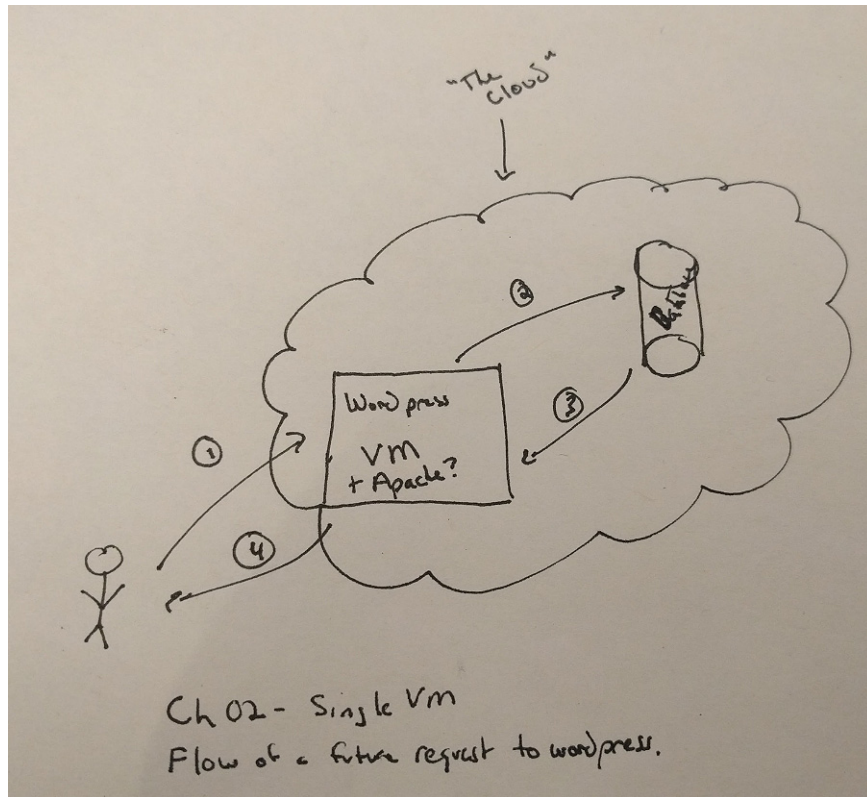 "The
Cloud"
2
Database
Wordpress
3
VM
+ Apache?
1
4
Ch 02 - Single VM
Flow of a future request to wordpress.